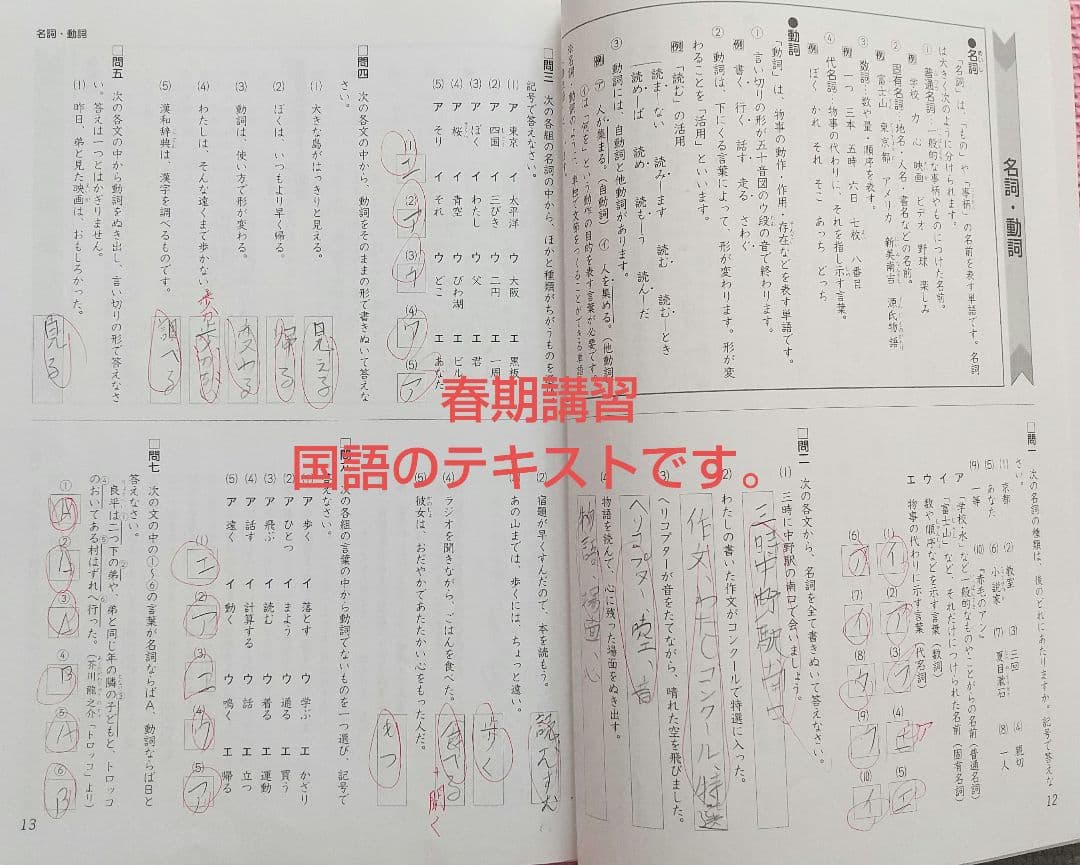 名詞・動詞
●名詞
「名詞」は、「もの」や「事柄」の名前を表す単語です。名詞
は大きく次のように分けられます。
① 普通名詞：一般的な事柄やものにつけた名前。
例 学校 力 心 映画 ビデオ 野球 楽しみ
② 固有名詞：地名・人名・書名などの名前。
例 富士山 東京都 アメリカ 新美南吉 源氏物語
③ 数詞：数や量・順序を表す。
例 一つ 三本 五時 六日 七枚 八番目
④ 代名詞：物事の代わりに、それを指し示す言葉。
例 ぼく かれ それ そこ あっち どっち
●動詞
「動詞」は、物事の動作・作用・存在などを表す単語です。
① 言い切りの形が五十音図のウ段の音で終わります。
例 書く 行く 話す 走る さわぐ
② 動詞は、下にくる言葉によって、形が変わります。形が変
わることを「活用」といいます。
例 「読む」の活用
読ま―ない 読み―ます 読む 読む―とき
読め―ば 読め 読も―う 読ん―だ
③ 動詞には、自動詞と他動詞があります。
例 ㋐ 人が集まる。（自動詞） ㋑ 人を集める。（他動詞）
問一 次の名詞の種類は、後のどれにあたりますか。記号で答えな
さい。
(1) 京都 (2) 教室 (3) 三回 (4) 親切
(5) あなた (6) 小説家 (7) 夏目漱石 (8) 一人
(9) 一等 (10) 「赤毛のアン」
ア 「学校・水」など一般的なものやことがらの名前（普通名詞）
イ 「富士山」など、それだけにつけられた名前（固有名詞）
ウ 数や順序などを示す言葉（数詞）
エ 物事の代わりに示す言葉（代名詞）
(1) イ (2) ア (3) ウ (4) (5) エ
(6) ア (7) イ (8) ウ (9) ウ (10) イ
問二 次の各文から、名詞を全て書きぬいて答えなさい。
(1) 三時に中野駅の南口で会いましょう。
(2) わたしの書いた作文がコンクールで特選に入った。
作文、わたし、コンクール、特選
(3) ヘリコプターが音をたてながら、晴れた空を飛びました。
ヘリコプター、空、音
(4) 物語を読んで、心に残った場面をぬき出す。
12
名詞・動詞
問三 次の各組の名詞の中から、ほかと種類がちがうものを
記号で答えなさい。
(1) ア 東京 イ 太平洋 ウ 大阪 エ 黒板
(2) ア 四国 イ 三びき ウ 二円 エ 一周
(3) ア ぼく イ わたし ウ 父 エ 君
(4) ア 桜 イ 青空 ウ びわ湖 エ ビル
(5) ア そり イ それ ウ どこ エ あなた
(1) エ (2) ア (3) ウ (4) ウ (5) ア
問四 次の各文の中から、動詞をそのままの形で書きぬいて答えな
さい。
(1) 大きな島がはっきりと見える。
見える
(2) ぼくは、いつもより早く帰る。
帰る
(3) 動詞は、使い方で形が変わる。
変わる
(4) わたしは、そんな遠くまで歩かない。
歩か
(5) 漢和辞典は、漢字を調べるものです。
調べる
問五 次の各文の中から動詞をぬき出し、言い切りの形で答えなさ
い。答えは一つとはかぎりません。
(1) 昨日、弟と見た映画は、おもしろかった。
見る
(2) 宿題が早くすんだので、本を読もう。
読む、すむ
(3) あの山までは、歩くには、ちょっと遠い。
歩く
(4) ラジオを聞きながら、ごはんを食べた。
食べる
聞く
(5) 彼女は、おだやかであたたかい心をもった人だ。
もつ
次の各組の言葉の中から動詞でないものを一つ選び、記号で
答えなさい。
(1) ア 歩く イ 落とす ウ 学ぶ エ かざり
(2) ア ひとつ イ まよう ウ 通る エ 買う
(3) ア 飛ぶ イ 読む ウ 着る エ 運動
(4) ア 話す イ 計算する ウ 話 エ 立つ
(5) ア 遠く イ 動く ウ 鳴く エ 帰る
(1) エ (2) ア (3) エ (4) ウ (5) ア
問七 次の文の中の①～⑥の言葉が名詞ならばA、動詞ならばBと
答えなさい。
良平は二つ下の弟や、弟と同じ年の隣の子どもと、トロッコ
のおいてある村はずれへ行った。（芥川龍之介「トロッコ」より）
① A ② A ③ A ④ B ⑤ A ⑥ B
13
春期講習
国語のテキストです。